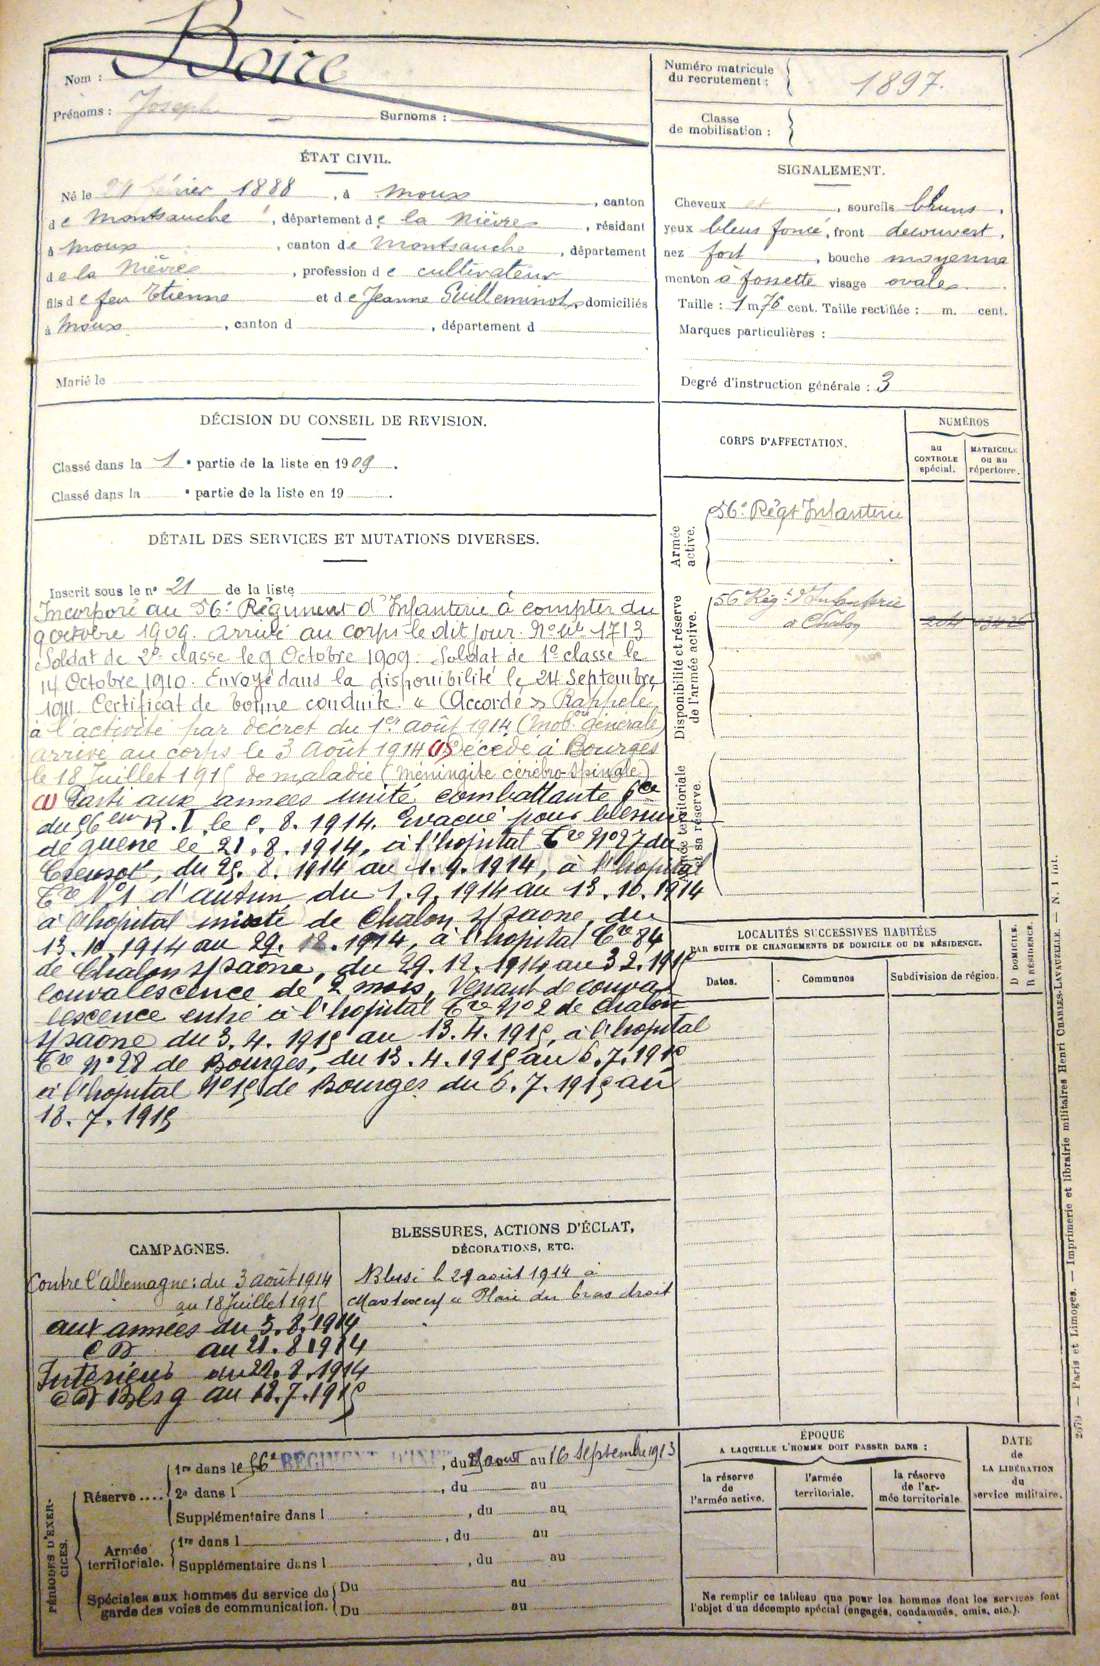 Nom : Boire
Prénoms : Joseph Surnoms :
Numéro matricule
du recrutement : 1897.
Classe
de mobilisation :
ÉTAT CIVIL.
Né le février 1888, à Moux, canton
de Montsauche, département de la Nièvre, résidant
à Moux, canton de Montsauche, département
de la Nièvre, profession de cultivateur
fils de feu Etienne et de Jeanne Guilleminot, domiciliés
à Moux, canton d , département d
Marié le
SIGNALEMENT.
Cheveux et , sourcils bruns,
yeux bleus foncé, front découvert,
nez fort, bouche moyenne
menton à fossette visage ovale
Taille : 1 m 76 cent. Taille rectifiée : m. cent.
Marques particulières :
Degré d'instruction générale : 3
DÉCISION DU CONSEIL DE REVISION.
Classé dans la 1e partie de la liste en 1909.
Classé dans la e partie de la liste en 19 .
DÉTAIL DES SERVICES ET MUTATIONS DIVERSES.
Inscrit sous le no 21 de la liste
Incorporé au 56e Régiment d'Infanterie à compter du
9 octobre 1909. Arrivé au corps le dit jour. No Mle 1713
Soldat de 2e classe le 9 Octobre 1909. Soldat de 1e classe le
14 Octobre 1910. Envoyé dans la disponibilité le 24 Septembre
1911. Certificat de bonne conduite « Accordé » Rappelé
à l'activité par décret du 1er août 1914 (Mobon générale)
arrivé au corps le 3 Août 1914 (1) Décédé à Bourges
le 18 Juillet 1915 de maladie (Méningite cérébro-spinale)
(1) Parti aux armées unité combattante 6e Cie
du 56eme R.I. le 5.8.1914. Evacué pour blessure
de guerre le 21.8.1914, à l'hopital Cre No 27 du
Creusot, du 25.8.1914 au 1.9.1914, à l'hopital
Cre No 1 d'autun du 1.9.1914 au 13.10.1914
à l'hopital mixte de Chalon s/saône, du
13.10.1914 au 29.12.1914, à l'hopital Cre 84
de Chalon s/saône, du 29.12.1914 au 3.2.1915
convalescence de 2 mois, Venant de conva
lescence entré à l'hopital Cre No 2 de Chalon
s/saône du 3.4.1915 au 13.4.1915, à l'hopital
Cre No 28 de Bourges, du 13.4.1915 au 6.7.1915
à l'hopital No 15 de Bourges du 6.7.1915 au
18.7.1915
CORPS D'AFFECTATION.
NUMÉROS
au
CONTROLE
spécial.
MATRICULE
ou au
répertoire.
Armée
active.
56e Régt Infanterie
Disponibilité et réserve
de l'armée active.
56e Régt d'Infanterie
à Chalon
Armée territoriale
et sa réserve.
LOCALITÉS SUCCESSIVES HABITÉES
PAR SUITE DE CHANGEMENTS DE DOMICILE OU DE RÉSIDENCE.
Dates. Communes Subdivision de région. D DOMICILE. R RÉSIDENCE.
CAMPAGNES.
Contre l'Allemagne : du 3 août 1914
au 18 Juillet 1915
aux armées du 5.8.1914
CD au 21.8.1914
Intérieur du 22.8.1914
CD Blsg au 18.7.1915
BLESSURES, ACTIONS D'ÉCLAT,
DÉCORATIONS, ETC.
Blessé le 21 août 1914 à
Plaie du bras droit
PÉRIODES D'EXER-
CICES.
Réserve ....
1re dans le 56e RÉGIMENT D'INF , du août au 16 Septembre 1913
2e dans l , du au
Supplémentaire dans l , du au
Armée
territoriale.
1re dans l , du au
Supplémentaire dans l , du au
Spéciales aux hommes du service de
garde des voies de communication.
Du au
Du au
ÉPOQUE
A LAQUELLE L'HOMME DOIT PASSER DANS :
la réserve
de
l'armée active.
l'armée
territoriale.
la réserve
de l'ar-
mée territoriale.
DATE
de
LA LIBÉRATION
du
service militaire.
Ne remplir ce tableau que pour les hommes dont les services font
l'objet d'un décompte spécial (engagés, condamnés, omis, etc.).
2079 — Paris et Limoges. — Imprimerie et librairie militaires Henri CHARLES-LAVAUZELLE. — N. 1 int.